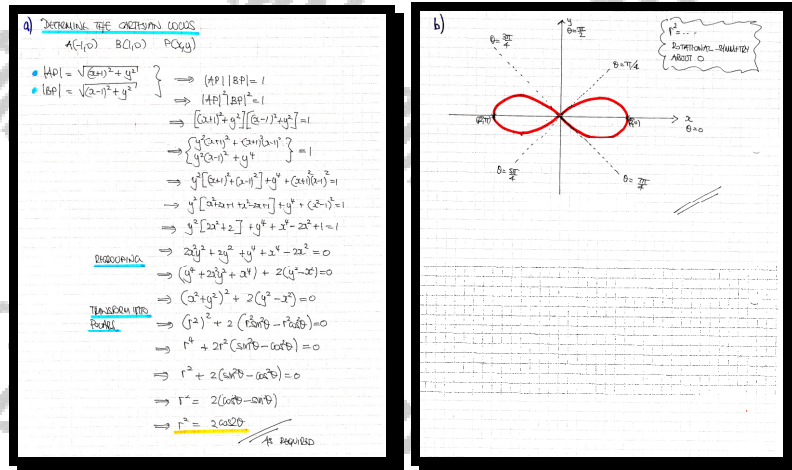 a) DETERMINE THE CARTESIAN LOCUS
A(-1,0) B(1,0) P(x,y)
|AP| = √(x+1)² + y²
|BP| = √(x-1)² + y²
⇒ |AP||BP| = 1
⇒ |AP|²|BP|² = 1
⇒ [(x+1)²+y²][(x-1)²+y²] = 1
⇒ { y²(x+1)² + (x+1)²(x-1)²
y²(x-1)² + y⁴ } = 1
⇒ y²[(x+1)²+(x-1)²] + y⁴ + (x+1)²(x-1)² = 1
⇒ y²[x²+2x+1+x²-2x+1] + y⁴ + (x²-1)² = 1
⇒ y²[2x²+2] + y⁴ + x⁴ - 2x² + 1 = 1
⇒ 2x²y² + 2y² + y⁴ + x⁴ - 2x² = 0
REGROUPING
⇒ (y⁴ + 2x²y² + x⁴) + 2(y²-x²) = 0
⇒ (x²+y²)² + 2(y²-x²) = 0
TRANSFORM INTO
POLARS
⇒ (r²)² + 2(r²sin²θ - r²cos²θ) = 0
⇒ r⁴ + 2r²(sin²θ - cos²θ) = 0
⇒ r² + 2(sin²θ - cos²θ) = 0
⇒ r² = 2(cos²θ - sin²θ)
⇒ r² = 2cos2θ
AS REQUIRED
b)
y
θ = π/2
θ = 3π/4
θ = π/4
r² = ...
ROTATIONAL SYMMETRY
ABOUT O
x
θ = 0
θ = 5π/4
θ = 7π/4